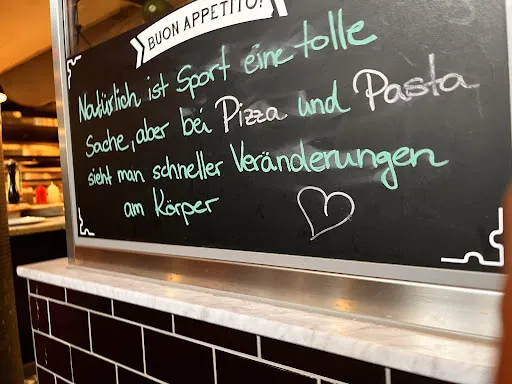 BUON APPETITO!
Natürlich ist Sport eine tolle
Sache, aber bei Pizza und Pasta
sieht man schneller Veränderungen
am Körper